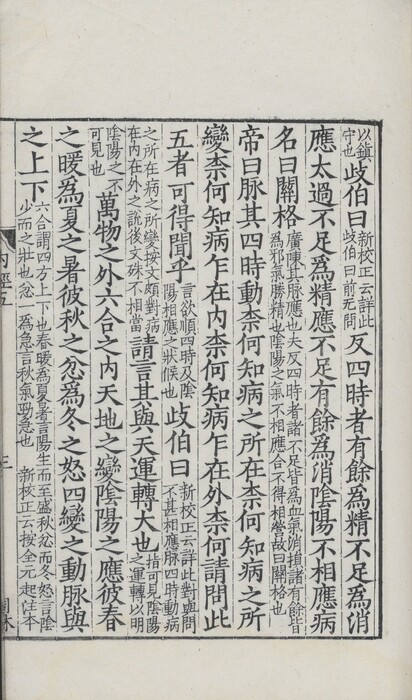 以鎮守也歧伯曰新校正云詳此歧伯曰前無問反四時者有餘爲精不足爲消
應太過不足爲精應不足有餘爲消隂陽不相應病
名曰關格廣陳其脉應也夫反四時者諸不足皆爲血氣消損諸有餘皆爲邪氣勝精也隂陽之氣不相應合不得相營故曰關格也
帝曰脉其四時動柰何知病之所在柰何知病之所
變柰何知病乍在内柰何知病乍在外柰何請問此
五者可得聞乎言欲順四時及陰陽相應之狀候也歧伯曰新校正云詳此對與問不甚相應脉四時動病
之所在病之所變按文頗對病在内在外之說後文殊不相當請言其與天運轉大也指可見陰陽之運轉以明
陰陽之不可見也萬物之外六合之内天地之變隂陽之應彼春
之暖爲夏之暑彼秋之忿爲冬之怒四變之動脉與
之上下六合謂四方上下也春暖爲夏暑言陽生而至盛秋忿而冬怒言陰少而之壯也忿一爲急言秋氣勁急也 新校正云按全元起注本
内經五
三